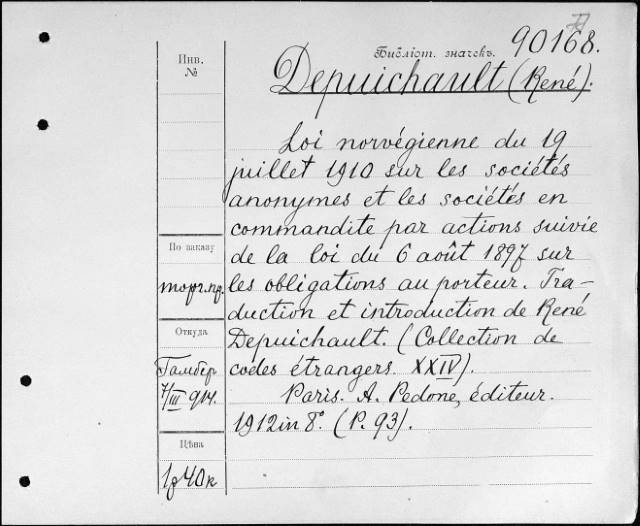 Библіот. значекъ. 90168.
Инв. №
Depuichault (René).
Loi norvégienne du 19
juillet 1910 sur les sociétés
anonymes et les sociétés en
commandite par actions suivie
de la loi du 6 août 1897 sur
По заказу
торг.пр.
les obligations au porteur. Tra-
duction et introduction de René
Откуда
Depuichault. (Collection de
Гамбер
codes étrangers. XXIV).
7/III 914.
Paris. A. Pedone, éditeur.
1912 in 8°. (P. 93).
Цѣна
1р 40к